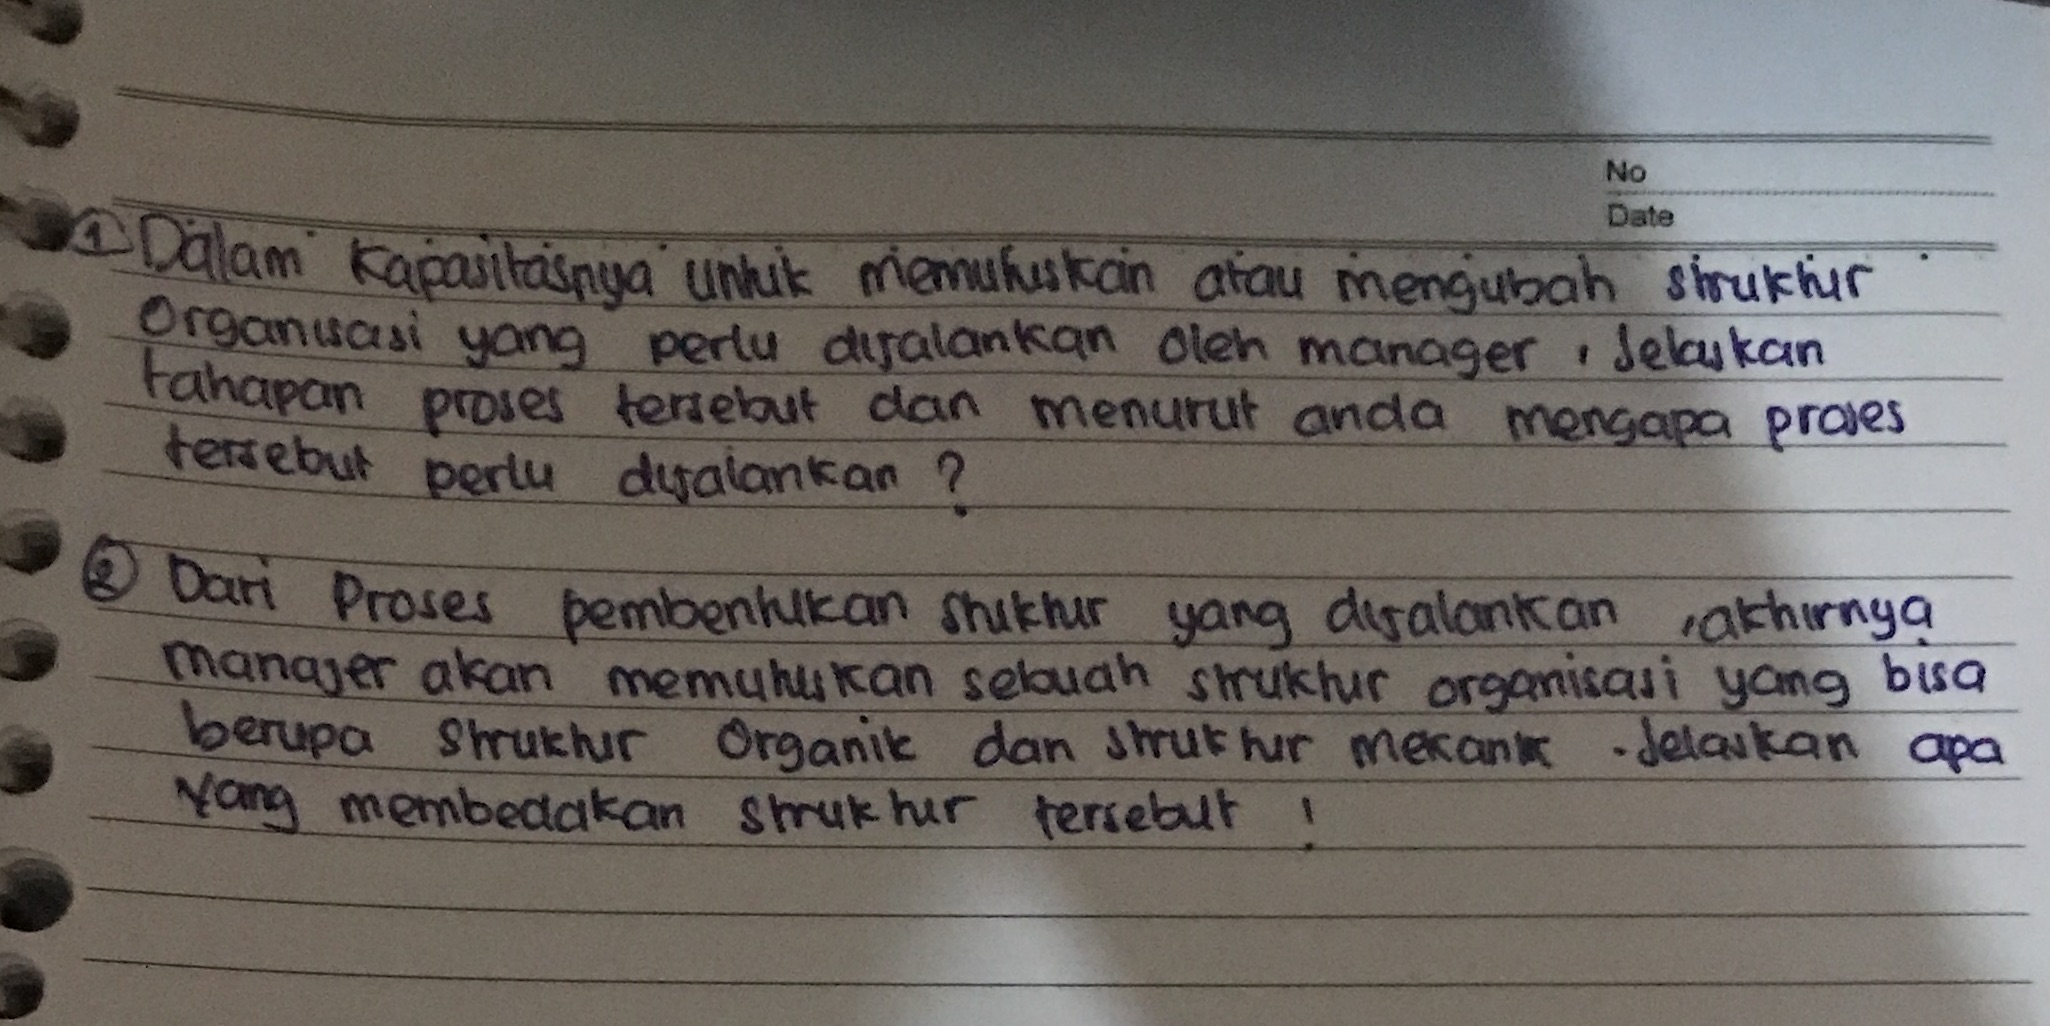 No
Date
① Dalam kapasitasnya untuk memutuskan atau mengubah struktur
organisasi yang perlu dijalankan oleh manager, Jelaskan
tahapan proses tersebut dan menurut anda mengapa proses
tersebut perlu dijalankan ?
② Dari Proses pembentukan struktur yang dijalankan, akhirnya
manajer akan memutuskan sebuah struktur organisasi yang bisa
berupa struktur Organik dan struktur mekanik. Jelaskan apa
Yang membedakan struktur tersebut !